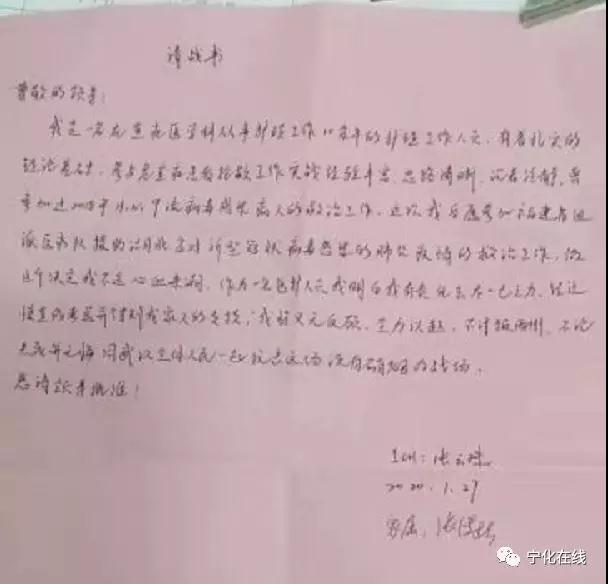 请战书
尊敬的领导：
我是一名在重症医学科从事护理工作的护理工作人员，有着扎实的
理论基础，参与危重症患者抢救工作实战经验丰富，思路清晰、沉着冷静，曾
参加过甲流病毒感染病人的救治工作。这次我自愿参加福建省
医疗队援助湖北应对新型冠状病毒感染的肺炎疫情的救治工作，做
这个决定我不是心血来潮，作为一名医护人员我明白我有责任去尽一己之力，经过
慎重的考虑并得到我家人的支持，我将义无反顾，全力以赴，不计报酬，不论
生死并无悔同武汉全体人民一起抗击这场没有硝烟的战场。
恳请领导批准！
2020.1.27
家属：
宁化在线